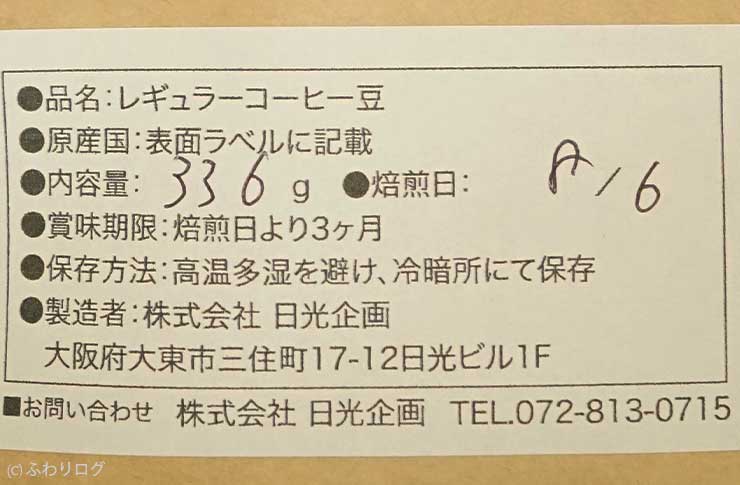 ●品名:レギュラーコーヒー豆
●原産国:表面ラベルに記載
●内容量: 336 g ●焙煎日: /6
●賞味期限:焙煎日より3ヶ月
●保存方法:高温多湿を避け、冷暗所にて保存
●製造者:株式会社 日光企画
大阪府大東市三住町17-12日光ビル1F
■お問い合わせ 株式会社 日光企画 TEL.072-813-0715
(c)ふわりログ